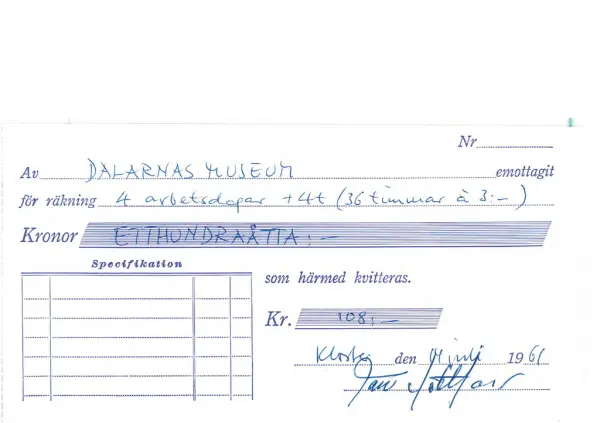 Nr
Av DALARNAS MUSEUM emottagit
för räkning 4 arbetsdagar +4t (36 timmar à 3:-)
Kronor ETTHUNDRAÅTTA:-
Specifikation
som härmed kvitteras.
Kr. 108:-
Kloster den juli 1961